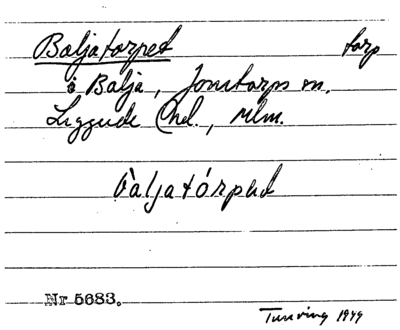 Baljatorpet torp
å Balja, Jonstorps sn.
Luggude hd., Mlm.
bàljatórpət
Nr 5683.
Tunving 1949